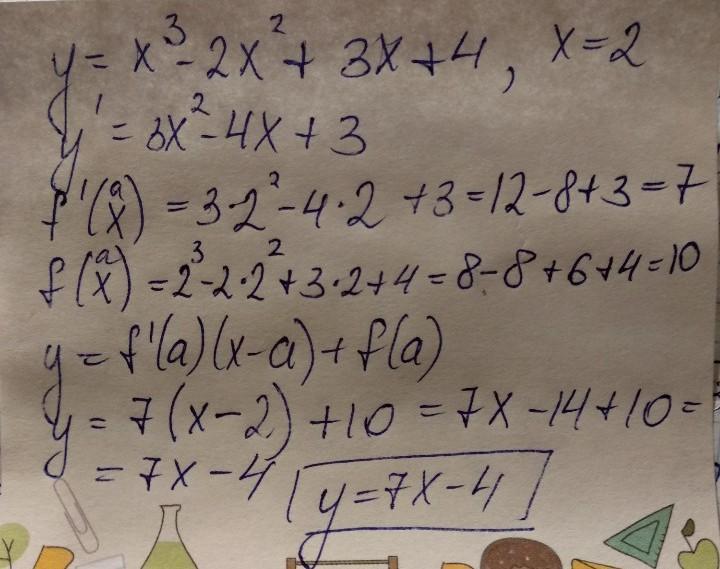 y = x³ - 2x² + 3x + 4, x = 2
y' = 3x² - 4x + 3
f'(x) = 3·2² - 4·2 + 3 = 12 - 8 + 3 = 7
f(x) = 2³ - 2·2² + 3·2 + 4 = 8 - 8 + 6 + 4 = 10
y = f'(a)(x - a) + f(a)
y = 7(x - 2) + 10 = 7x - 14 + 10 =
= 7x - 4 y = 7x - 4